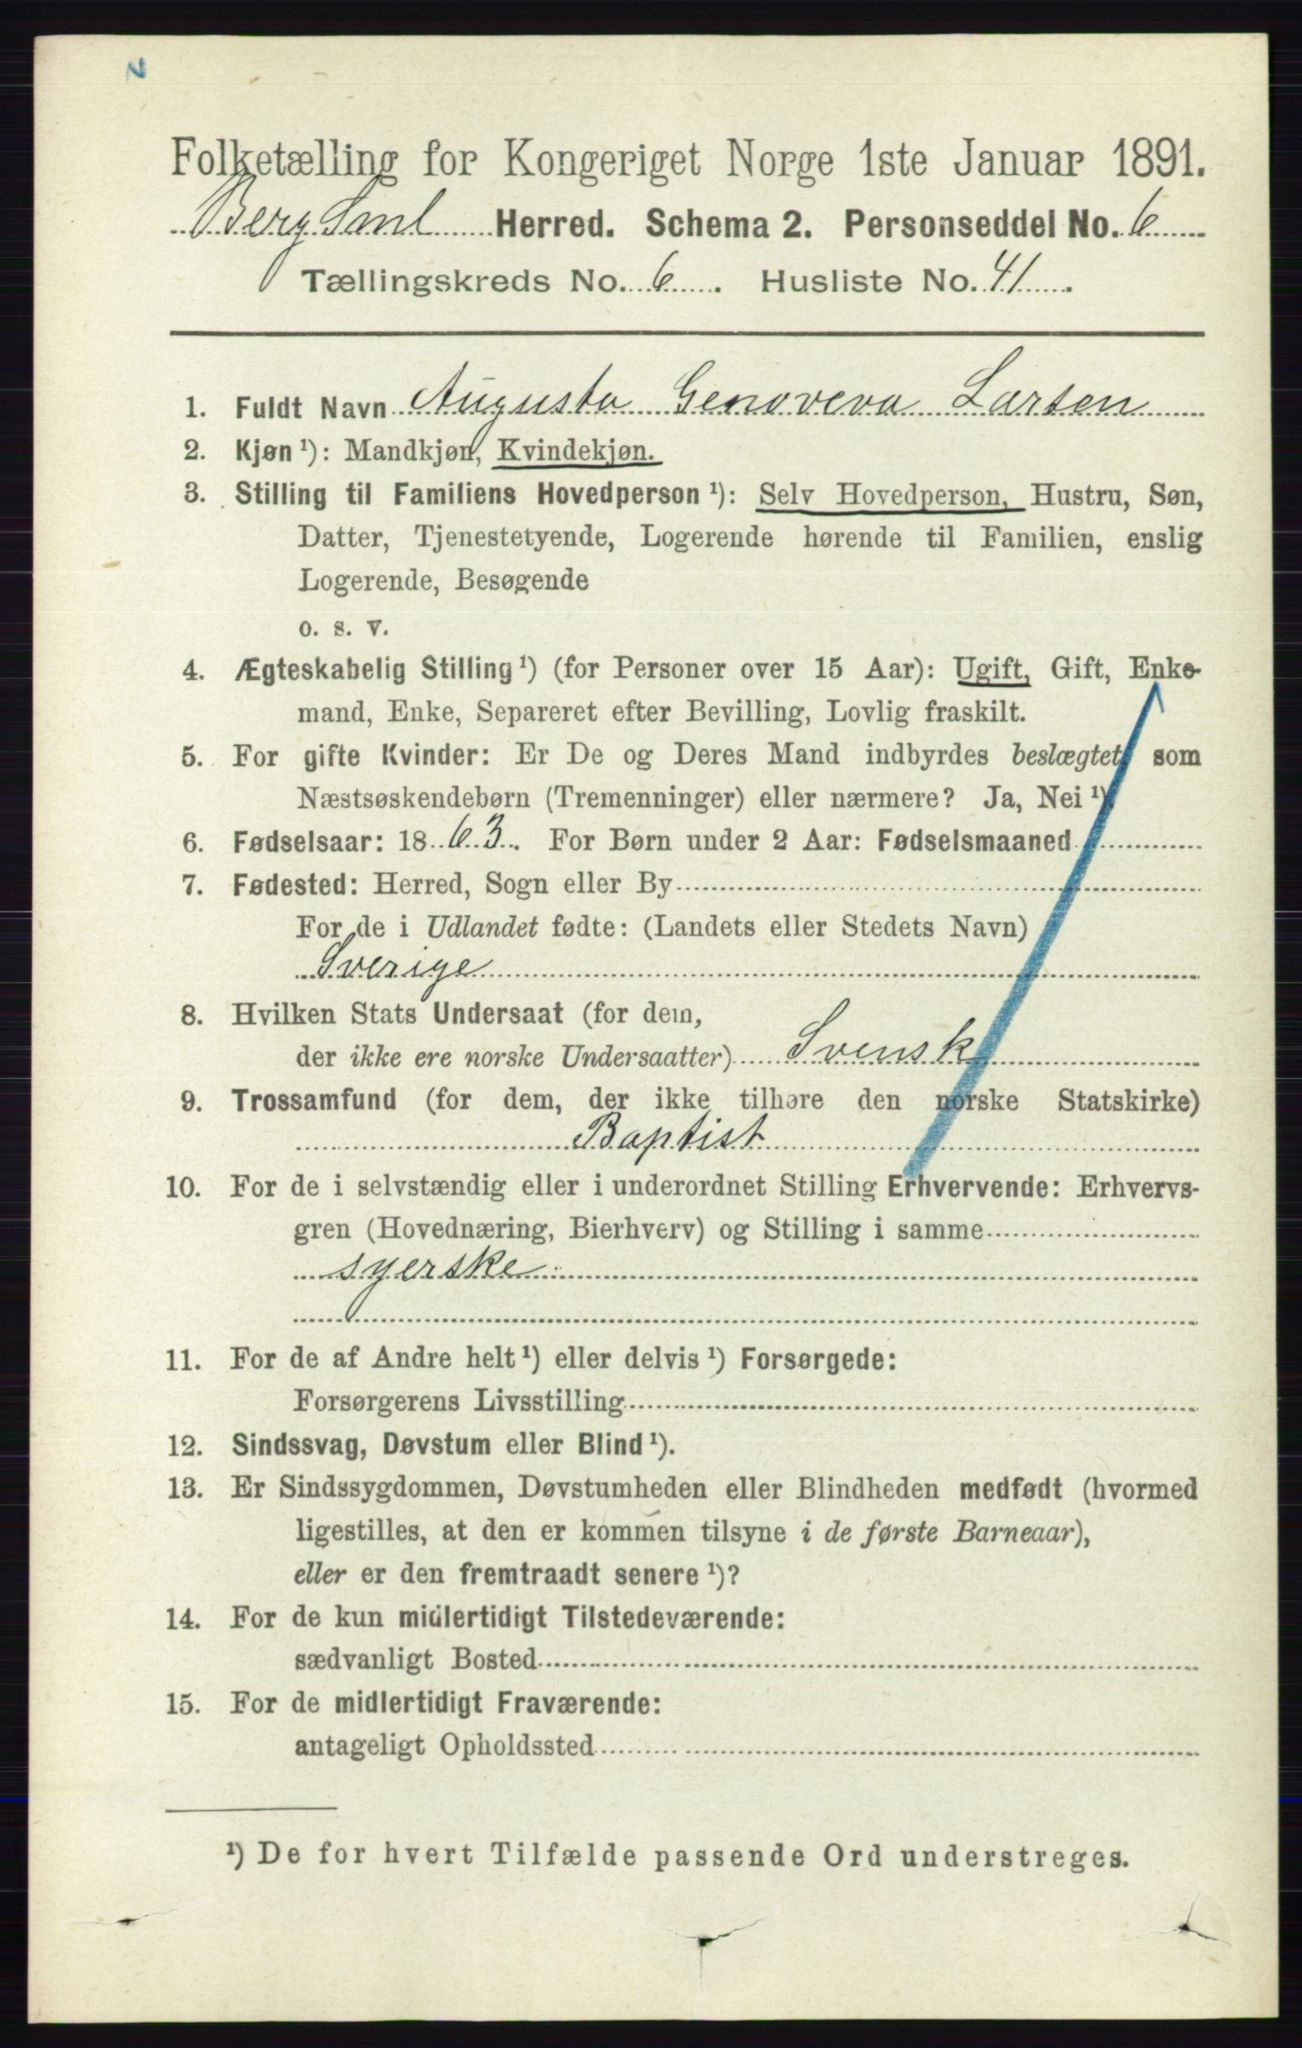 Folketælling for Kongeriget Norge 1ste Januar 1891.
Berg Sml Herred. Schema 2. Personseddel No. 6
Tællingskreds No. 6. Husliste No. 41.
1. Fuldt Navn Augusta Genoveva Larsen
2. Kjøn ¹): Mandkjøn, Kvindekjøn.
3. Stilling til Familiens Hovedperson ¹): Selv Hovedperson, Hustru, Søn,
Datter, Tjenestetyende, Logerende hørende til Familien, enslig
Logerende, Besøgende
o. s. v.
4. Ægteskabelig Stilling ¹) (for Personer over 15 Aar): Ugift, Gift, Enke-
mand, Enke, Separeret efter Bevilling, Lovlig fraskilt.
5. For gifte Kvinder: Er De og Deres Mand indbyrdes beslægtet som
Næstsøskendebørn (Tremenninger) eller nærmere? Ja, Nei ¹)
6. Fødselsaar: 1863. For Børn under 2 Aar: Fødselsmaaned
7. Fødested: Herred, Sogn eller By
For de i Udlandet fødte: (Landets eller Stedets Navn)
Sverige
8. Hvilken Stats Undersaat (for dem,
der ikke ere norske Undersaatter) Svensk
9. Trossamfund (for dem, der ikke tilhøre den norske Statskirke)
Baptist
10. For de i selvstændig eller i underordnet Stilling Erhvervende: Erhvervs-
gren (Hovednæring, Bierhverv) og Stilling i samme
syerske
11. For de af Andre helt ¹) eller delvis ¹) Forsørgede:
Forsørgerens Livsstilling
12. Sindssvag, Døvstum eller Blind ¹).
13. Er Sindssygdommen, Døvstumheden eller Blindheden medfødt (hvormed
ligestilles, at den er kommen tilsyne i de første Barneaar),
eller er den fremtraadt senere ¹)?
14. For de kun midlertidigt Tilstedeværende:
sædvanligt Bosted
15. For de midlertidigt Fraværende:
antageligt Opholdssted
¹) De for hvert Tilfælde passende Ord understreges.